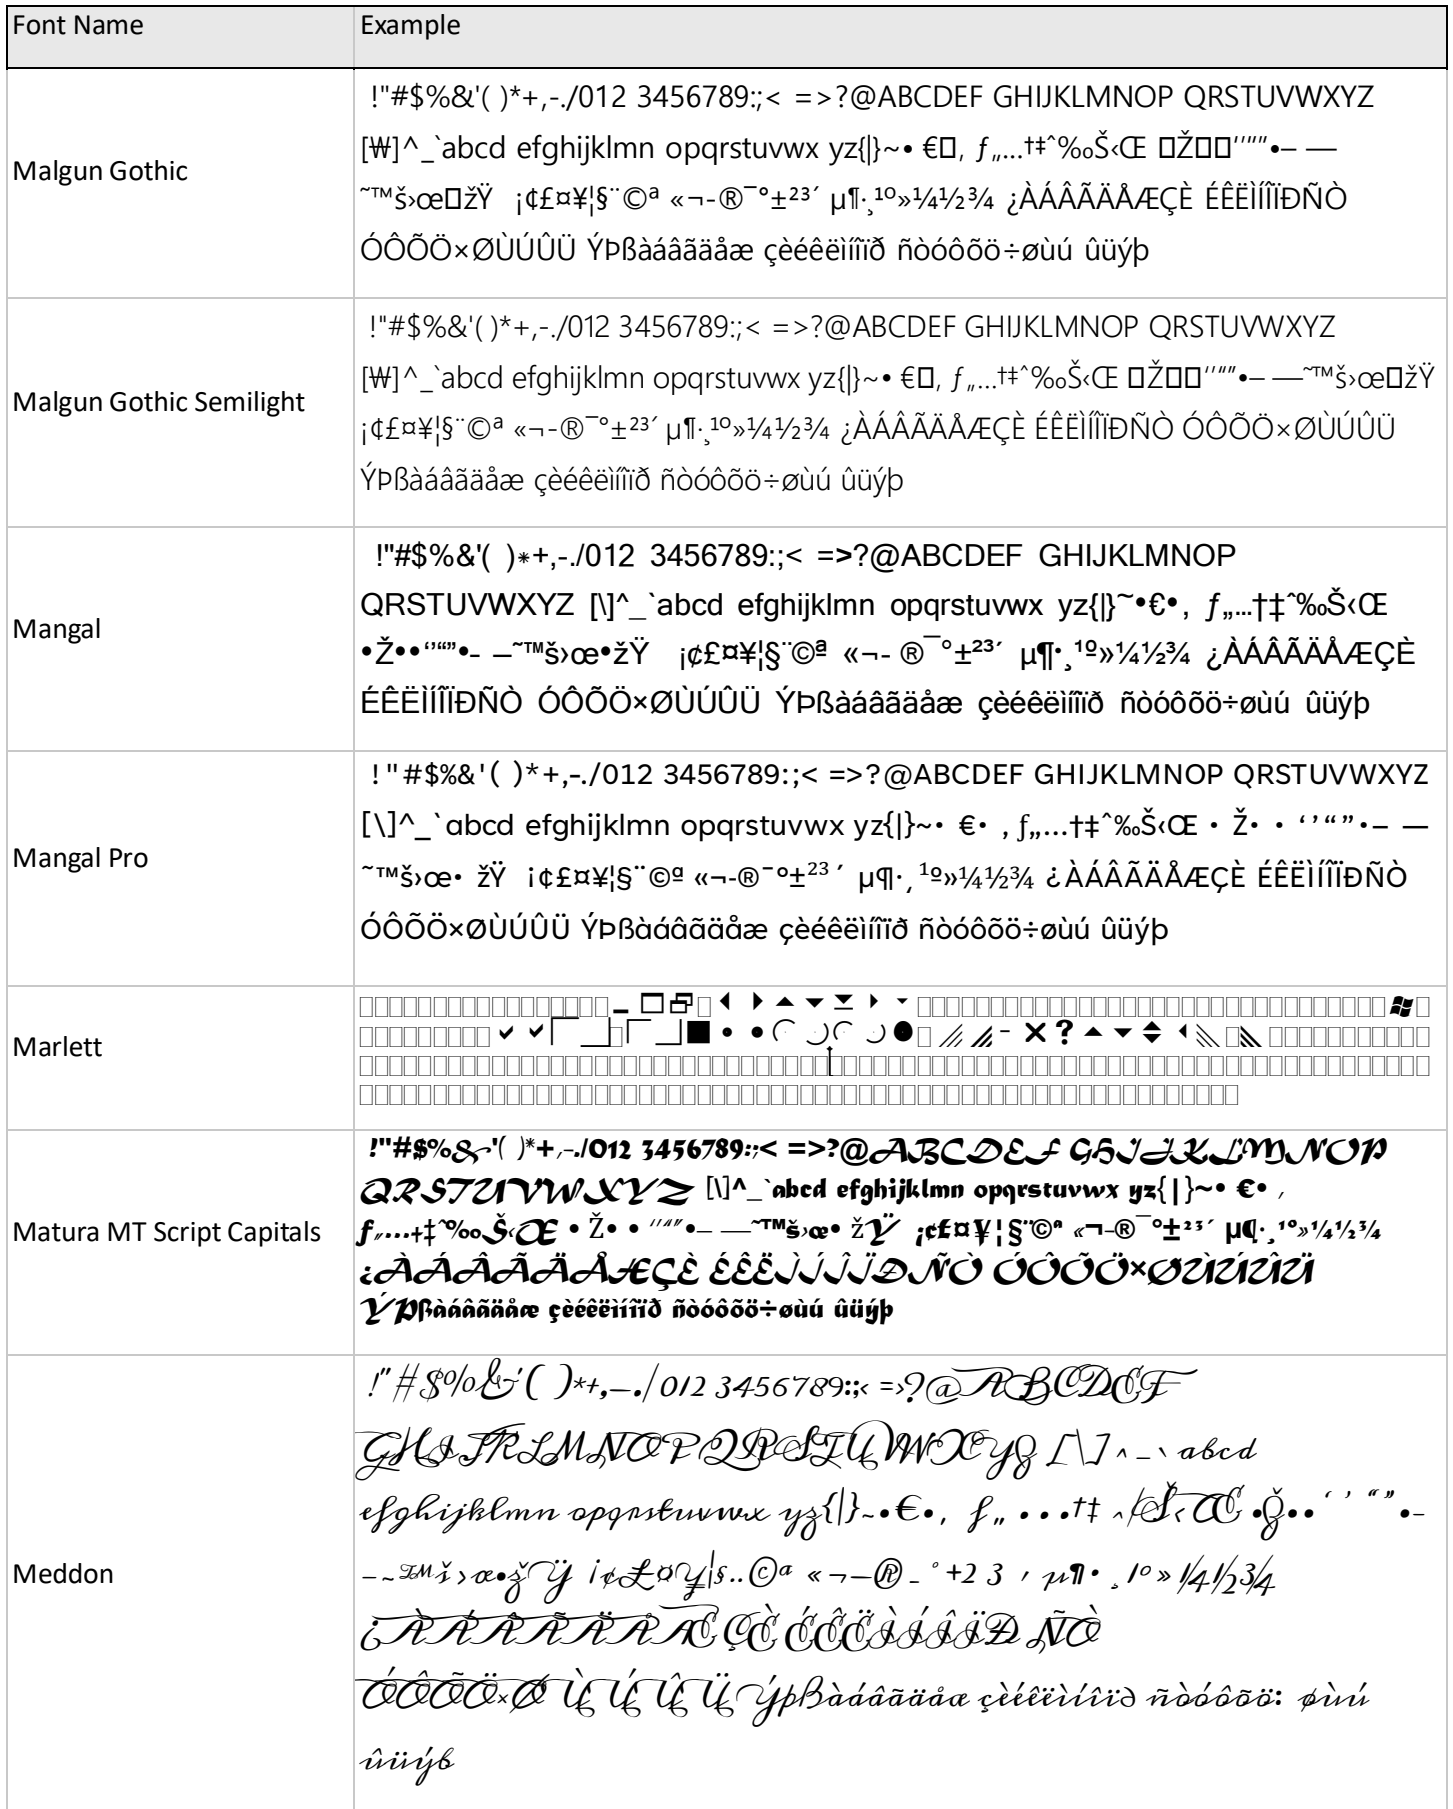 Font Name Example
Malgun Gothic
!"#$%&'( )*+,-./012 3456789:;< =>?@ABCDEF GHIJKLMNOP QRSTUVWXYZ
[₩]^_`abcd efghijklmn opqrstuvwx yz{|}~• €□, ƒ„…†‡ˆ‰Š‹Œ □Ž□□''""•– —
˜™š›œ□žŸ ¡¢£¤¥¦§¨©ª «¬-®¯°±²³´ µ¶·¸¹º»¼½¾ ¿ÀÁÂÃÄÅÆÇÈ ÉÊËÌÍÎÏÐÑÒ
ÓÔÕÖ×ØÙÚÛÜ ÝÞßàáâãäåæ çèéêëìíîïð ñòóôõö÷øùú ûüýþ
Malgun Gothic Semilight
!"#$%&'( )*+,-./012 3456789:;< =>?@ABCDEF GHIJKLMNOP QRSTUVWXYZ
[₩]^_`abcd efghijklmn opqrstuvwx yz{|}~• €□, ƒ„…†‡ˆ‰Š‹Œ □Ž□□''""•– —˜™š›œ□žŸ
¡¢£¤¥¦§¨©ª «¬-®¯°±²³´ µ¶·¸¹º»¼½¾ ¿ÀÁÂÃÄÅÆÇÈ ÉÊËÌÍÎÏÐÑÒ ÓÔÕÖ×ØÙÚÛÜ
ÝÞßàáâãäåæ çèéêëìíîïð ñòóôõö÷øùú ûüýþ
Mangal
!"#$%&'( )*+,-./012 3456789:;< =>?@ABCDEF GHIJKLMNOP
QRSTUVWXYZ [\]^_`abcd efghijklmn opqrstuvwx yz{|}~•€•, ƒ„…†‡ˆ‰Š‹Œ
•Ž••‘’“”•– —˜™š›œ•žŸ ¡¢£¤¥¦§¨©ª «¬- ®¯°±²³´ µ¶·¸¹º»¼½¾ ¿ÀÁÂÃÄÅÆÇÈ
ÉÊËÌÍÎÏÐÑÒ ÓÔÕÖ×ØÙÚÛÜ ÝÞßàáâãäåæ çèéêëìíîïð ñòóôõö÷øùú ûüýþ
Mangal Pro
!"#$%&'( )*+,-./012 3456789:;< =>?@ABCDEF GHIJKLMNOP QRSTUVWXYZ
[\]^_`abcd efghijklmn opqrstuvwx yz{|}~• €• , ƒ„…†‡ˆ‰Š‹Œ • Ž• • ‘’“”•– —
˜™š›œ• žŸ ¡¢£¤¥¦§¨©ª «¬-®¯°±²³´ µ¶·¸¹º»¼½¾ ¿ÀÁÂÃÄÅÆÇÈ ÉÊËÌÍÎÏÐÑÒ
ÓÔÕÖ×ØÙÚÛÜ ÝÞßàáâãäåæ çèéêëìíîïð ñòóôõö÷øùú ûüýþ
Marlett
Matura MT Script Capitals
!"#$%&'( )*+,-./012 3456789:;< =>?@ABCDEF GHIJKLMNOP
QRSTUVWXYZ [\]^_`abcd efghijklmn opqrstuvwx yz{|}~• €• ,
ƒ„…†‡ˆ‰Š‹Œ • Ž• • ‘’“”•– —˜™š›œ• žŸ ¡¢£¤¥¦§¨©ª «¬-®¯°±²³´ µ¶·¸¹º»¼½¾
¿ÀÁÂÃÄÅÆÇÈ ÉÊËÌÍÎÏÐÑÒ ÓÔÕÖ×ØÙÚÛÜ
ÝÞßàáâãäåæ çèéêëìíîïð ñòóôõö÷øùú ûüýþ
Meddon
!"#$%&'( )*+,-./012 3456789:;< =>?@ABCDEF
GHIJKLMNOP QRSTUVWXYZ [\]^_`abcd
efghijklmn opqrstuvwx yz{|}~•€•, ƒ„…†‡ ˆ‰Š‹Œ •Ž••‘’“”•–
—˜™š›œ•žŸ ¡¢£¤¥¦§¨©ª «¬-®¯°±²³´ µ¶·¸¹º»¼½¾
¿ÀÁÂÃÄÅÆÇÈ ÉÊËÌÍÎÏÐÑÒ
ÓÔÕÖ×ØÙÚÛÜ Ýþßàáâãäåæ çèéêëìíîïð ñòóôõö÷øùú
ûüýþ